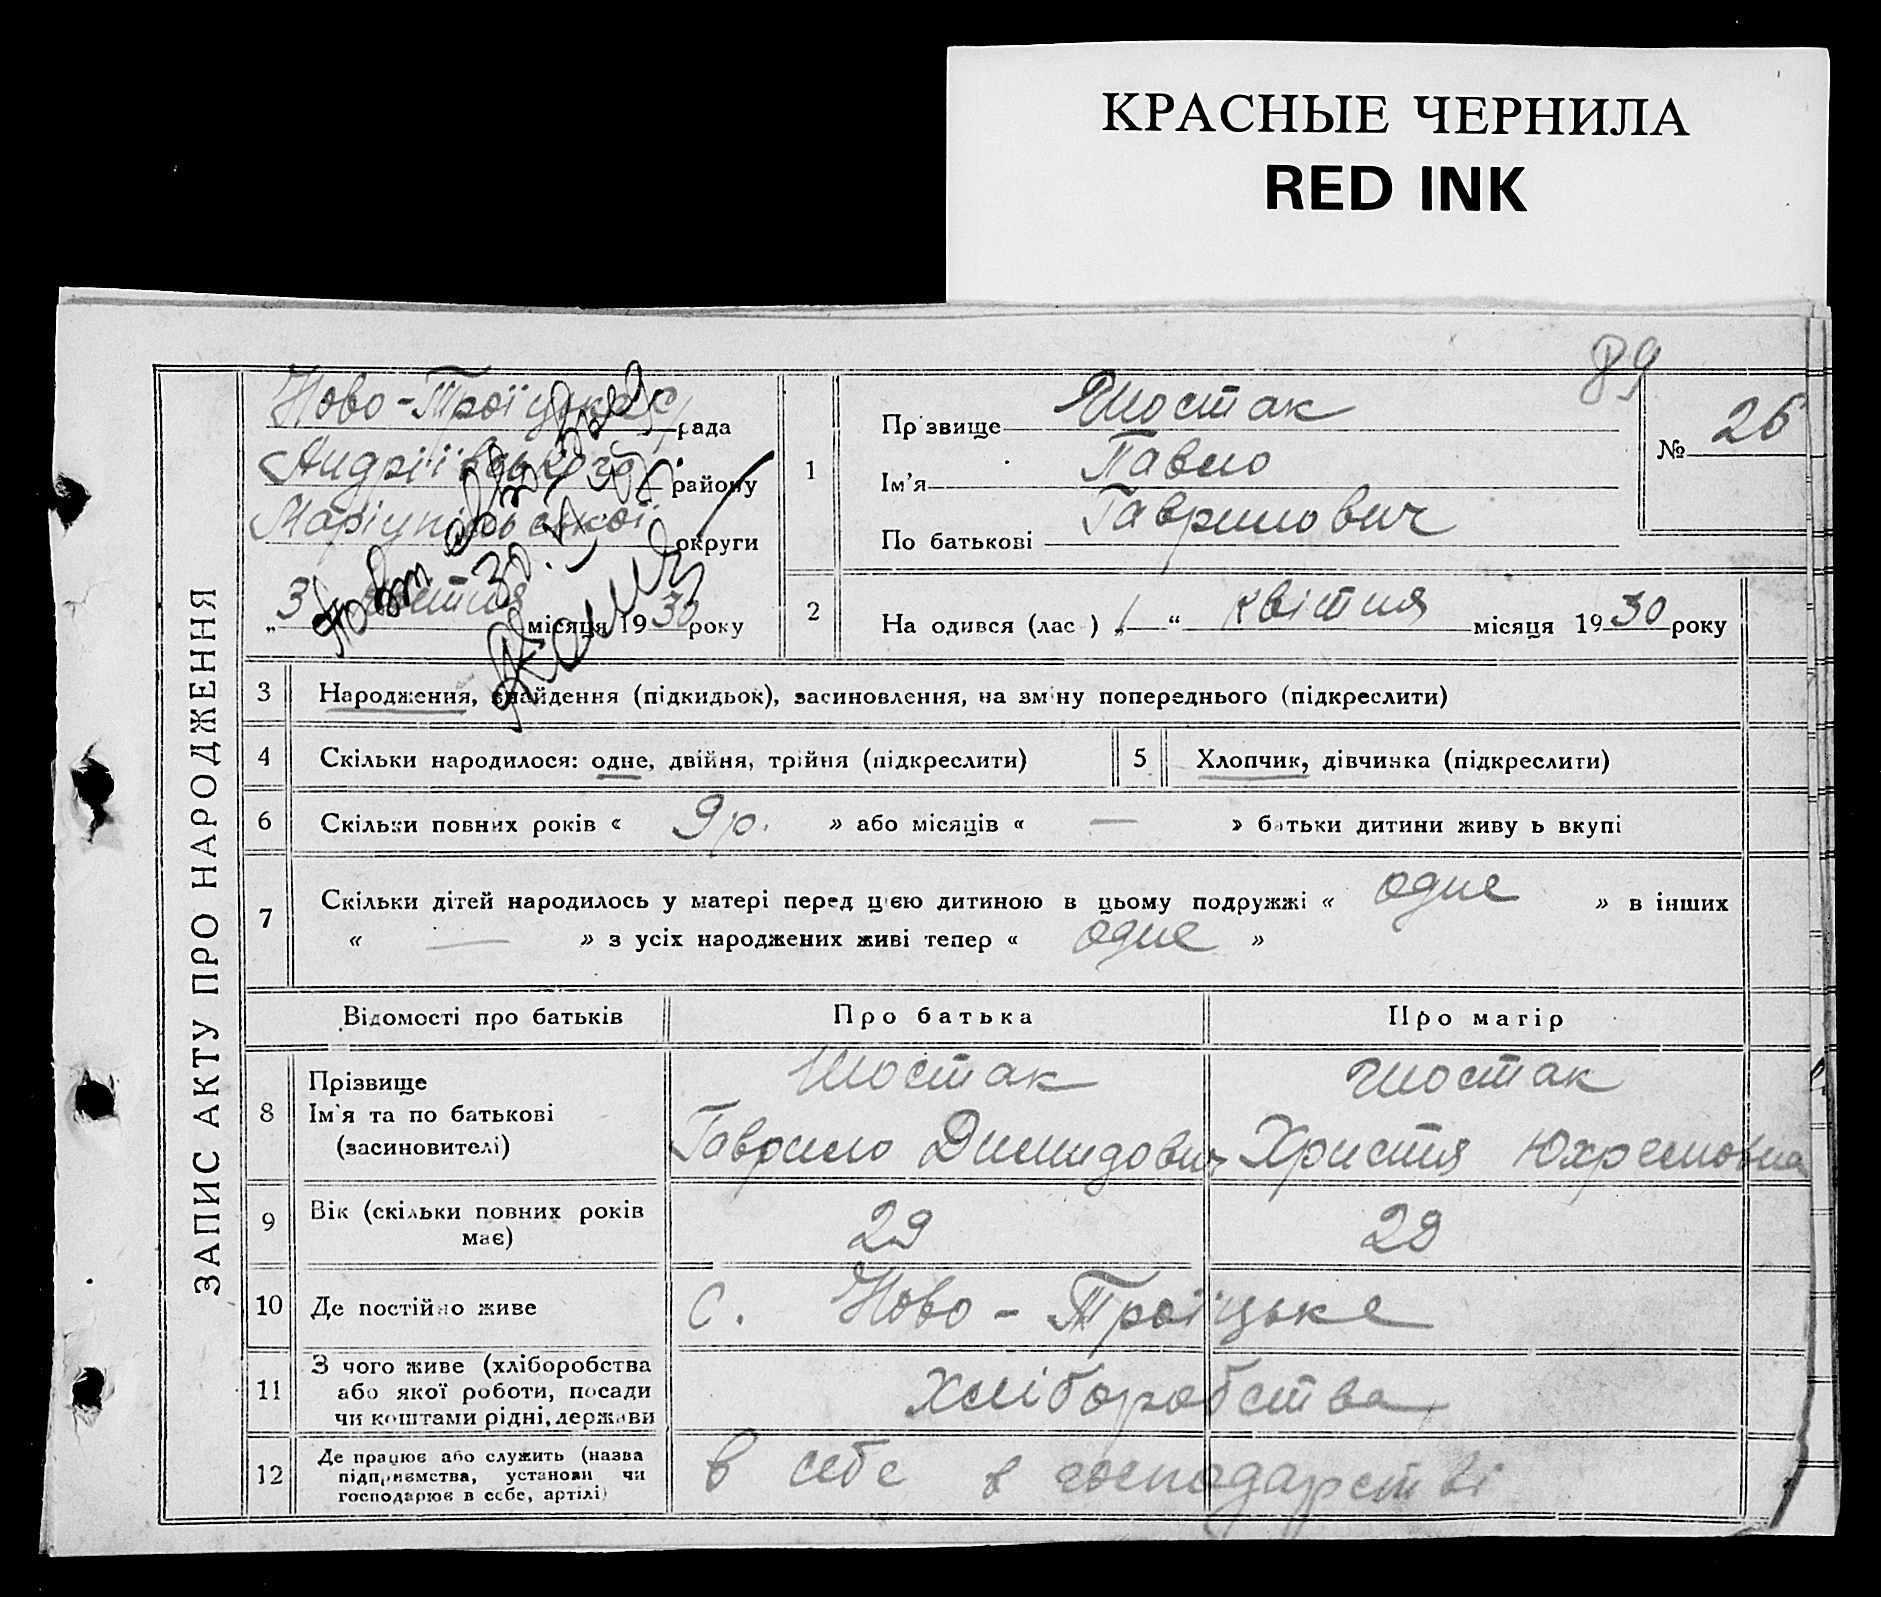 КРАСНЫЕ ЧЕРНИЛА
RED INK
89
ЗАПИС АКТУ ПРО НАРОДЖЕННЯ
Ново-Троїцька рада
Андріївського району
Маріупільської округи
„3 квітня місяця 1930 року
1
Прізвище Шостак
Ім'я Павло
По батькові Гаврилович
№ 26
2
На одився (лас ) „1 “ квітня місяця 1930 року
3 Народження, знайдення (підкидьок), засиновлення, на зміну попереднього (підкреслити)
4 Скільки народилося: одне, двійня, трійня (підкреслити) 5 Хлопчик, дівчинка (підкреслити)
6 Скільки повних років « 9 р. » або місяців « — » батьки дитини живу ь вкупі
7 Скільки дітей народилось у матері перед цією дитиною в цьому подружжі « одне » в інших
« — » з усіх народжених живі тепер « одне »
Відомості про батьків Про батька Про матір
8 Прізвище
Ім'я та по батькові
(засиновителі)
Шостак Шостак
Гаврило Димидович Христя Юхремовна
9 Вік (скільки повних років має) 29 29
10 Де постійно живе с. Ново-Троїцьке
11 З чого живе (хліборобства
або якої роботи, посади
чи коштами рідні, держави
хліборобства
12 Де працює або служить (назва
підприємства, установи чи
господарює в себе, артілі)
в себе в господарстві